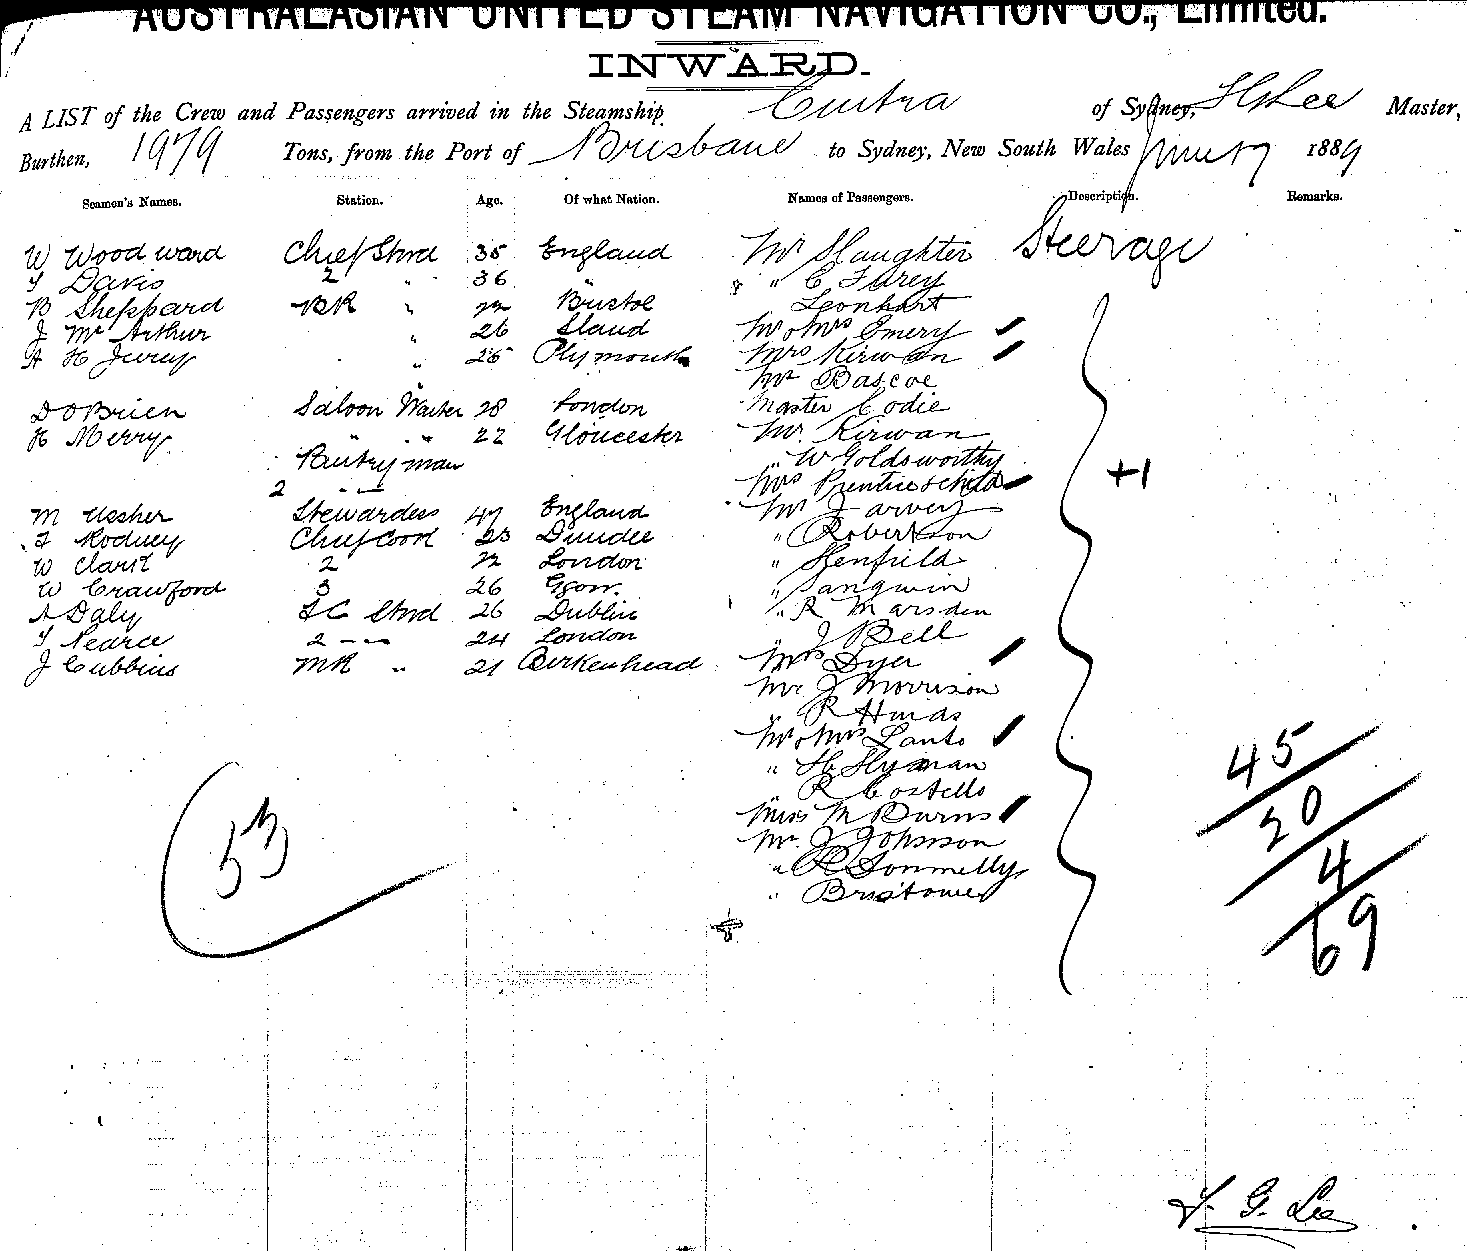 AUSTRALASIAN UNITED STEAM NAVIGATION CO., Limited.
INWARD.
A LIST of the Crew and Passengers arrived in the Steamship Cintra of Sydney, Lee Master,
Burthen, 1979 Tons, from the Port of Brisbane to Sydney, New South Wales June 17 1889
Seamen's Names. Station. Age. Of what Nation. Names of Passengers. Description. Remarks.
W Woodward Chief Stwd 35 England Mr Slaughter Steerage
Davis 2 " 36 " " C Farey
B Sheppard BR " 22 Bristol Leonhart
J McArthur " 26 Mr & Mrs Emery
A H " 25 Plymouth Mrs Kirwan
" Mr Bascoe
D O'Brien Saloon Waiter 28 London Master Codie
H Merry " " 22 Gloucester Mr. Kirwan
Pantryman " W Goldsworthy
2 Mrs Prentice & child +1
M Ussher Stewardess 47 England Mr J arvey
Rodney Chief Cook 23 Dundee " Robertson
W Clark 2 22 London " Henfield
W Crawford 3 26 Ggow. " Sangwin
A Daly FC Stwd 26 Dublin " R Marsden
Pearce 2 24 London " J Bell
J Cubbins MR " 21 Birkenhead Mrs Dyer
Mr J Morrison
" R Hinds
Mr & Mrs Lanto
" H Hyman
" R Costello
Miss M Burns
Mr. J Johnson
" R Donnelly
" Bristowe
45
20
4
69
53
G. Lee